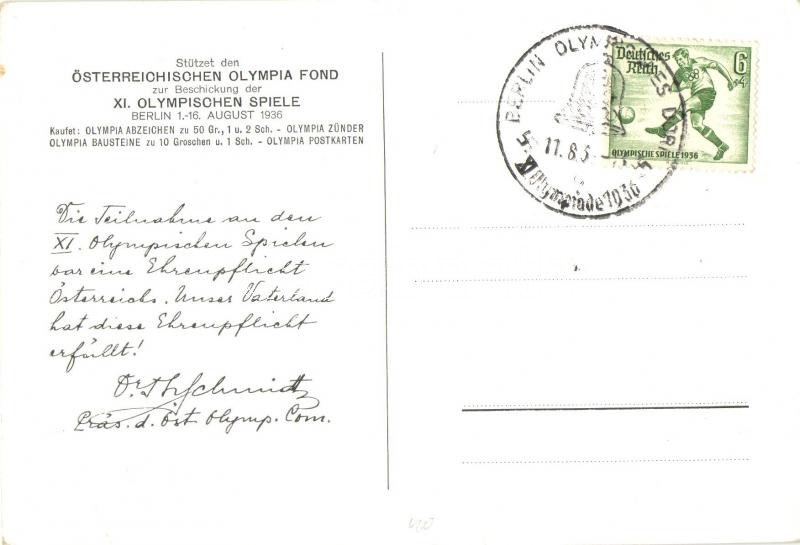 Stützet den
ÖSTERREICHISCHEN OLYMPIA FOND
zur Beschickung der
XI. OLYMPISCHEN SPIELE
BERLIN 1.-16. AUGUST 1936
Kaufet: OLYMPIA ABZEICHEN zu 50 Gr., 1 u. 2 Sch. - OLYMPIA ZÜNDER
OLYMPIA BAUSTEINE zu 10 Groschen u. 1 Sch. - OLYMPIA POSTKARTEN
Die Teilnahme an den
XI. Olympischen Spielen
war eine Ehrenpflicht
Österreichs. Unser Vaterland
hat diese Ehrenpflicht
erfüllt!
Dr. Th. Schmidt
Präs. d. Öst. Olymp. Com.
BERLIN OLYMPISCHES DORF
11.8.3
XI. Olympiade 1936
Deutsches
Reich
6
+4
OLYMPISCHE SPIELE 1936